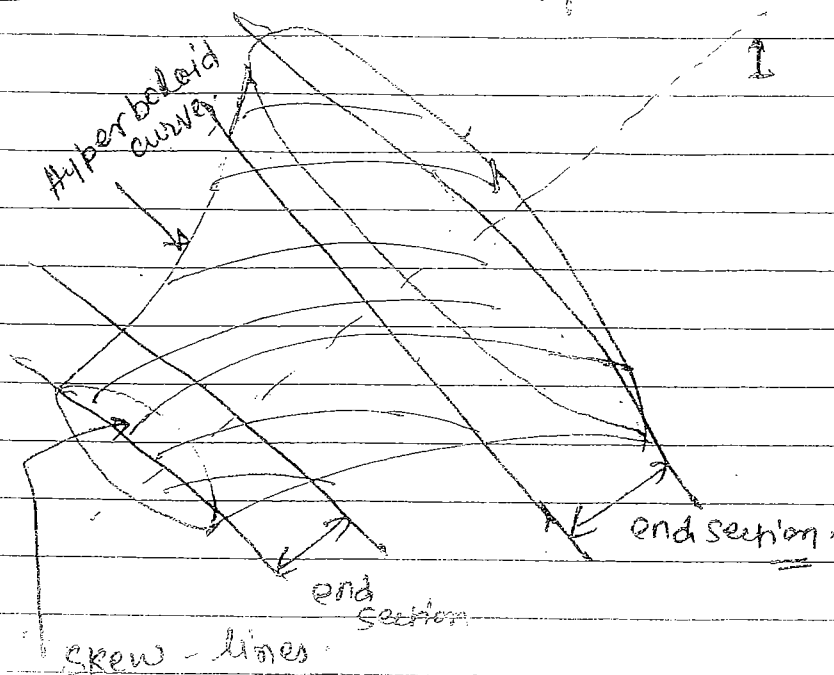 Hyperboloid
curve.
I
end section.
end
section
skew - lines.